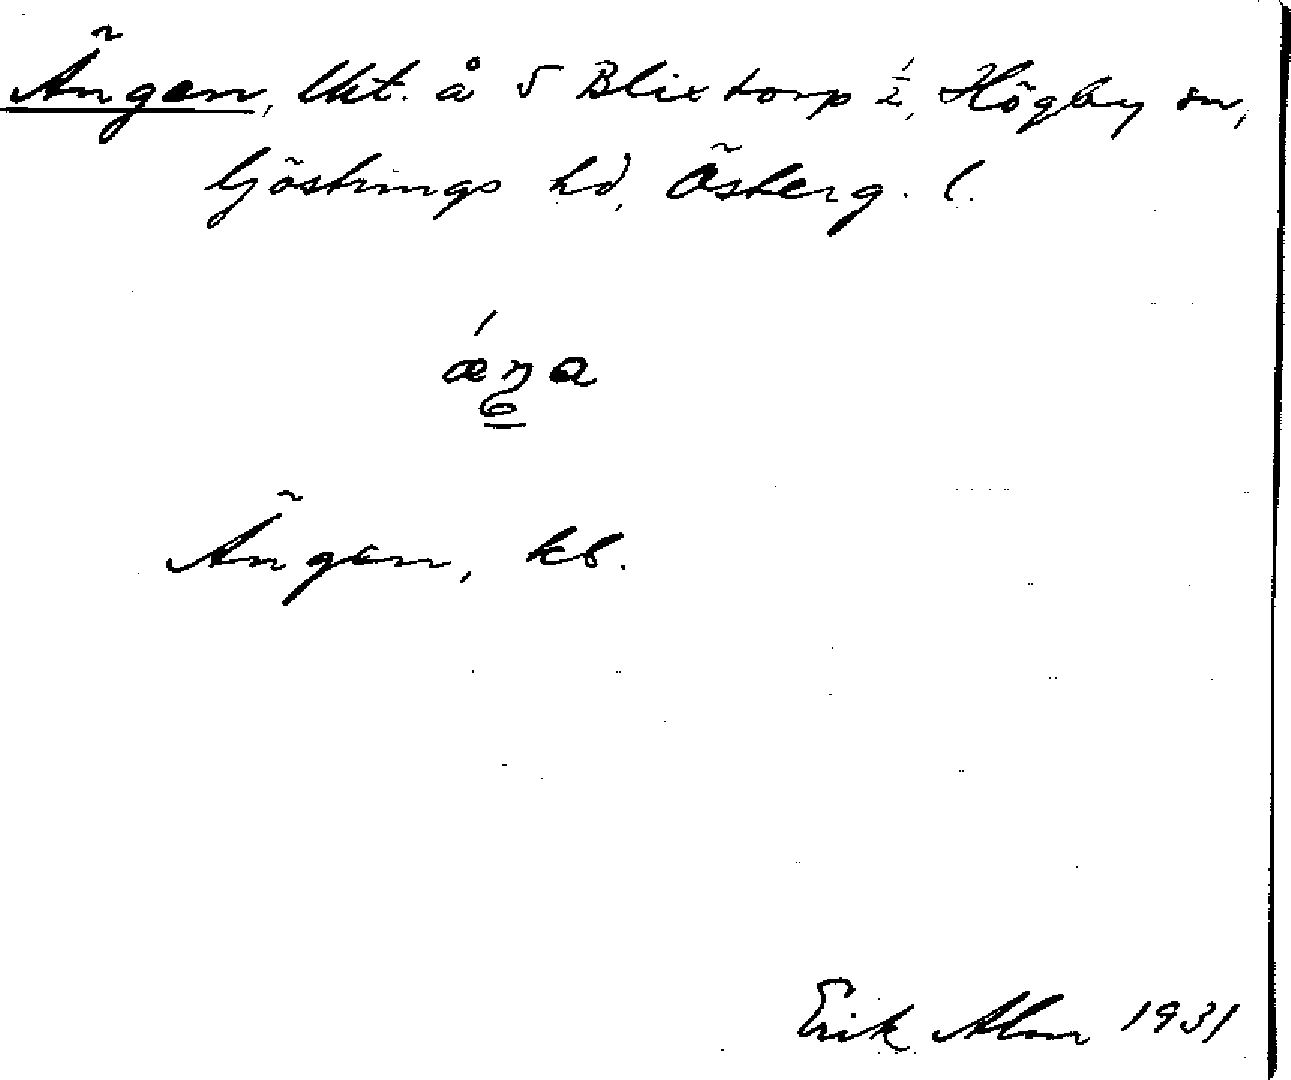 Ängen, lht. å 5 Blixtorp 1/2, Högby sn,
Göstrings hd, Österg. l.
ǽŋa
Ängen, kb.
Erik Alm 1931